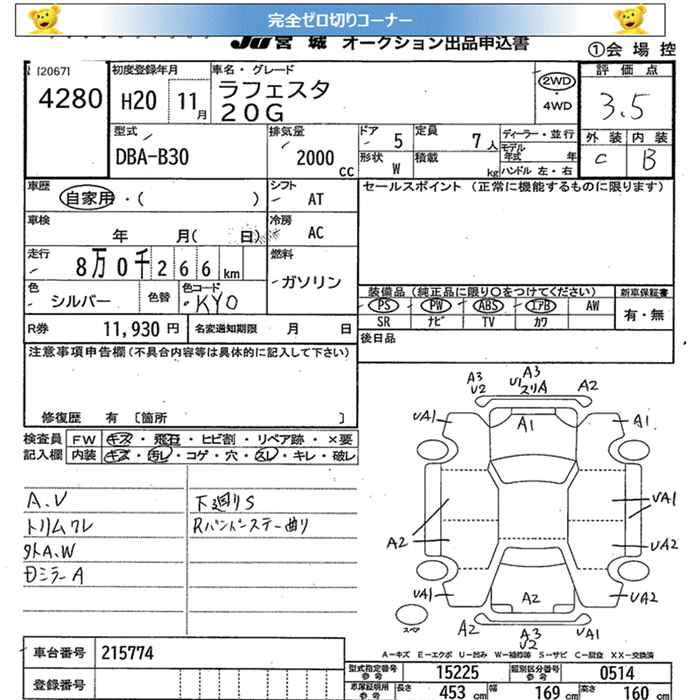 完全ゼロ切りコーナー
JU 宮城 オークション出品申込書
①会場控
[2067]
4280
初度登録年月
H20 11月
車名・グレード
ラフェスタ
20G
2WD
4WD
評価点
3.5
外装 内装
C B
型式
DBA-B30
排気量
2000 cc
ドア 5
形状 W
定員 7人
積載 kg
ディーラー・並行
モデル年式 年
ハンドル 左・右
車歴
自家用・( )
シフト AT
セールスポイント (正常に機能するものに限ります)
車検
年 月( 日)
冷房 AC
走行
8万0千266km
燃料
ガソリン
色
シルバー
色替
色コード
KY0
装備品 (純正品に限り〇をつけてください)
新車保証書
PS PW ABS エアB AW
SR ナビ TV カワ
有・無
R券 11,930円
名変通知期限 月 日
後日品
注意事項申告欄(不具合内容等は具体的に記入して下さい)
修復歴 有 [箇所 ]
検査員記入欄
FW キズ・飛石・ヒビ割・リペア跡・×要
内装 キズ・汚レ・コゲ・穴・スレ・キレ・破レ
A、U
トリムワレ
外A、W
下廻りS
Rバンパーステー曲り
A3
U2
A3
U1
スリA
A2
UA1
A1
A1
UA1
A2
UA1
UA2
UA1
A2
UA2
スペア
A2
A3
U2
A2
A-キズ E-エクボ U-凹み W-補修跡 S-サビ C-腐食 XX-交換済
車台番号 215774
登録番号
型式指定番号 参考 15225
類別区分番号 参考 0514
車庫証明用 参考 長さ 453 cm 幅 169 cm 高さ 160 cm